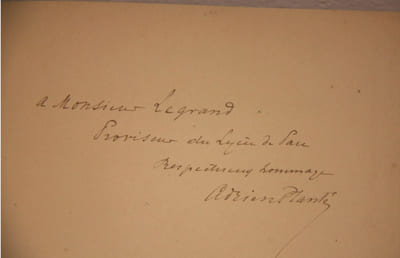 a Monsieur Legrand
Proviseur du Lycée de Pau
Respectueux hommage
Adrien Planté